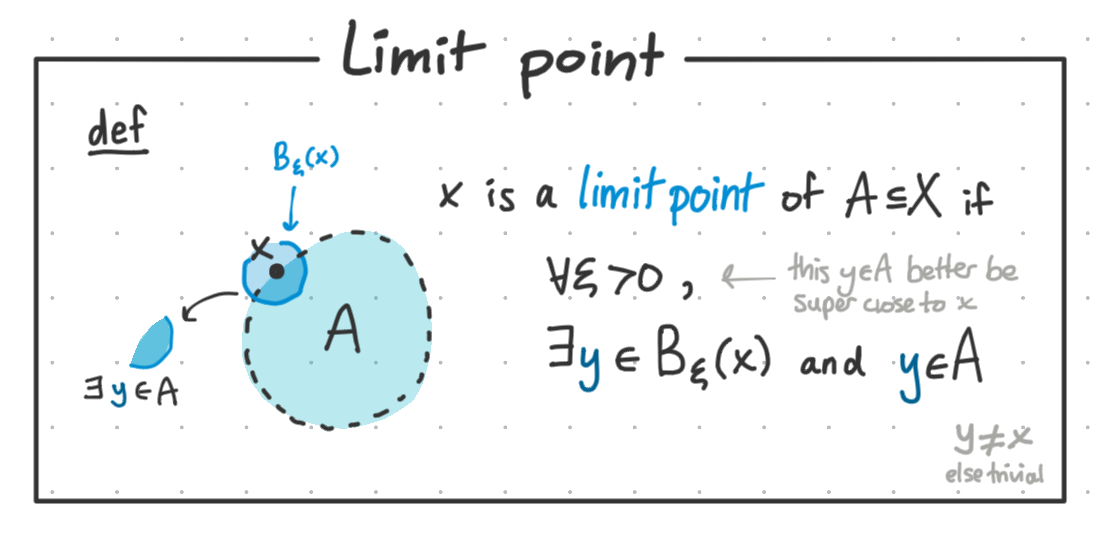 Limit point
def
Bξ(x)
x
A
∃ y ∈ A
x is a limit point of A ⊆ X if
∀ξ > 0 ,
this y∈A better be
super close to x
∃y ∈ Bξ(x) and y∈A
y ≠ x
else trivial